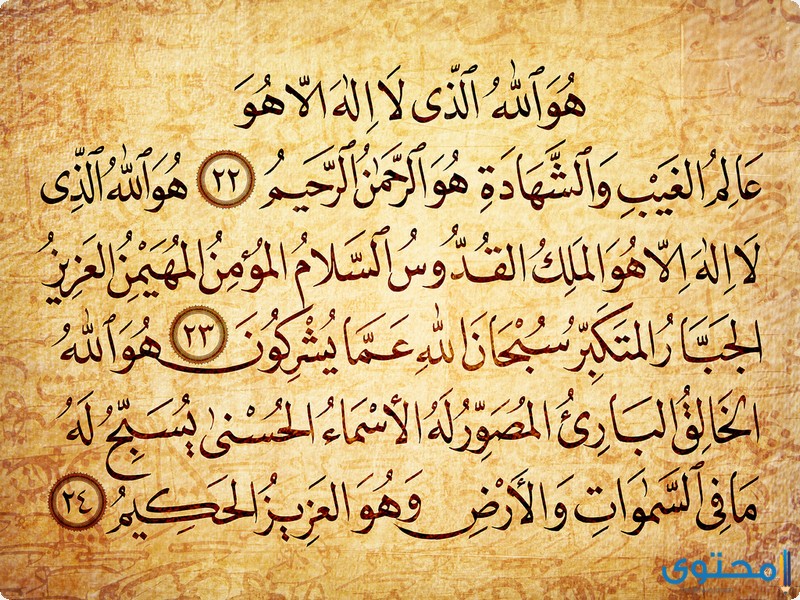 هُوَ ٱللهُ ٱلَّذِى لَا اِلٰهَ اِلَّا هُوَ
عَالِمُ الغَيْبِ وَٱلشَّهَادَةِ هُوَ ٱلرَّحْمٰنُ ٱلرَّحِيمُ ٢٢ هُوَ ٱللهُ ٱلَّذِى
لَا اِلٰهَ اِلَّا هُوَ المَلِكُ القُدُّوسُ ٱلسَّلَامُ المُؤمِنُ المُهَيْمِنُ العَزِيزُ
الجَبَّارُ المُتَكَبِّرُ سُبْحَانَ اللهِ عَمَّا يُشْرِكُونَ ٢٣ هُوَ ٱللهُ
الخَالِقُ البَارِئُ المُصَوِّرُ لَهُ الأَسْمَاءُ الحُسْنىٰ يُسَبِّحُ لَهُ
مَا فِى ٱلسَّمٰوَاتِ وَالأَرْضِ وَهُوَ العَزِيزُ الحَكِيمُ ٢٤
محتوى